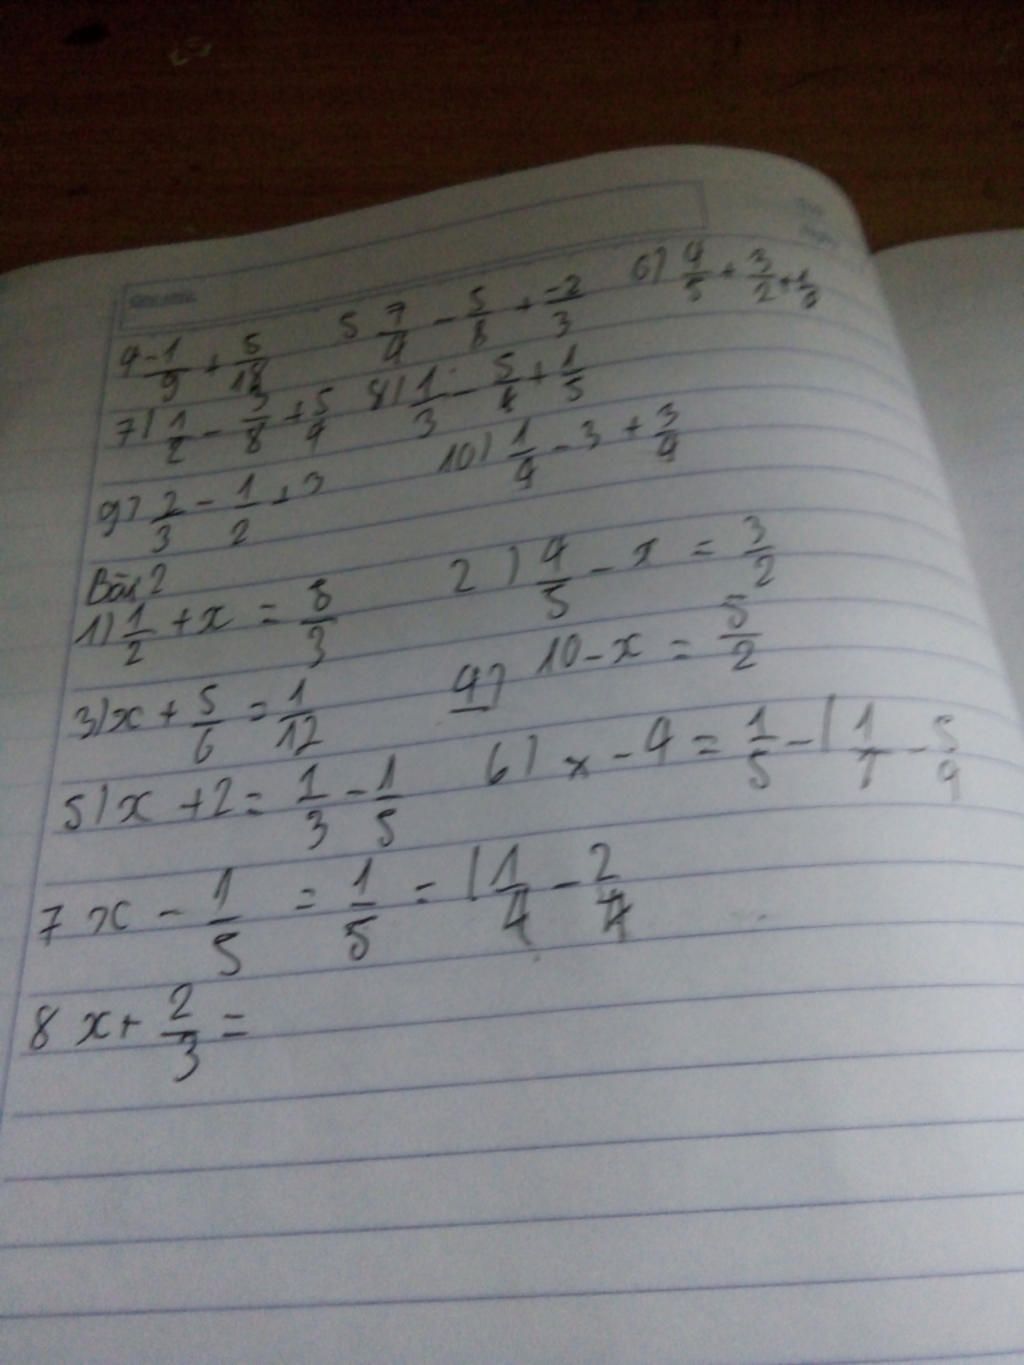 4 -1/9 + 5/18 5 7/4 - 5/8 + -2/3 6) 4/5 + 3/2 +
7) 1/2 - 3/8 + 5/4 8) 1/3 - 5/4 + 1/5
9) 2/3 - 1/2 + 3 10) 1/4 - 3 + 3/4
Bài 2
1) 1/2 + x = 8/3 2) 4/5 - x = 3/2
3) x + 5/6 = 1/12 4) 10 - x = 5/2
5) x + 2 = 1/3 - 1/5 6) x - 4 = 1/5 - ( 1/7 - 5/9
7 x - 1/5 = 1/5 = ( 1/4 - 2/4
8 x + 2/3 =